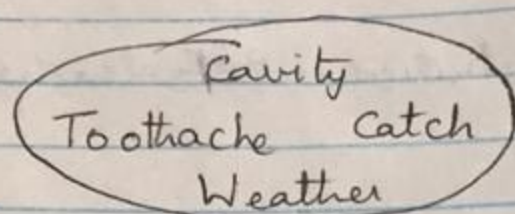 Cavity
Toothache Catch
Weather